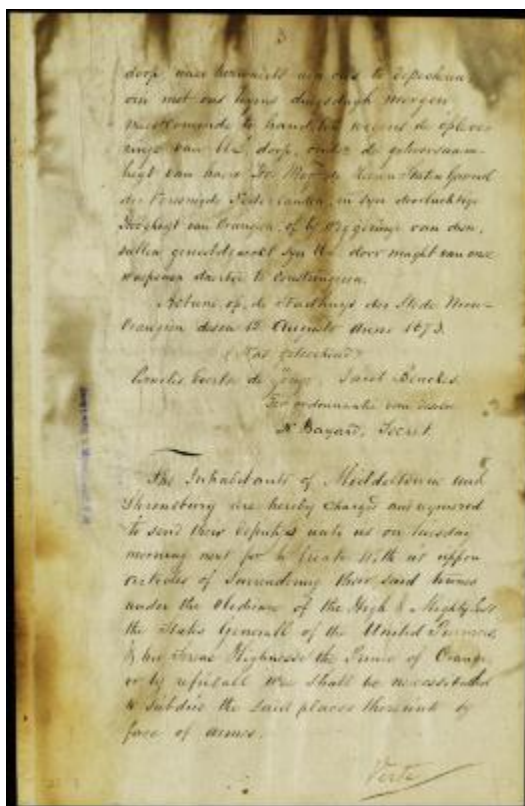 3
dorp naer herwaerts aen ons te depecheren,
om met ons tegens dingsdagh morgen
te handelen wegens de oplever
inge van Ul. dorp, onder de gehoorsaam-
heyt van haer Ho: Mog: de Heeren Staten Generael
der Vereenigde Nederlanden, en syn doorluchtige
Hoogheyt van Orangien, of by weygeringe van dien,
sullen genootsaeckt syn Ul. door maght van onse
wapenen daertoe te constringeren.
Actum op de Stadhuys der Stede Nieu-
Orangien desen 12 Augusto Anno 1673.
(Was geteekend)
Cornelis Evertse de Jonge. Jacob Benckes.
Ter ordonnantie van deselve
N. Bayard, Secret.
The Inhabitants of Middeltowne and
Shrewsbury are hereby charged and required
to send their deputies unto us on Tuesday
morning next for to treate with us uppon
Articles of Surrendering their said townes
under the Obedience of the High & Mighty Lords
the States Generall of the United Provinces,
& his Serene Highnesse the Prince of Orange
or by refusall wee shall be necessitated
to subdue the said places thereunto by
force of armes.
Verte